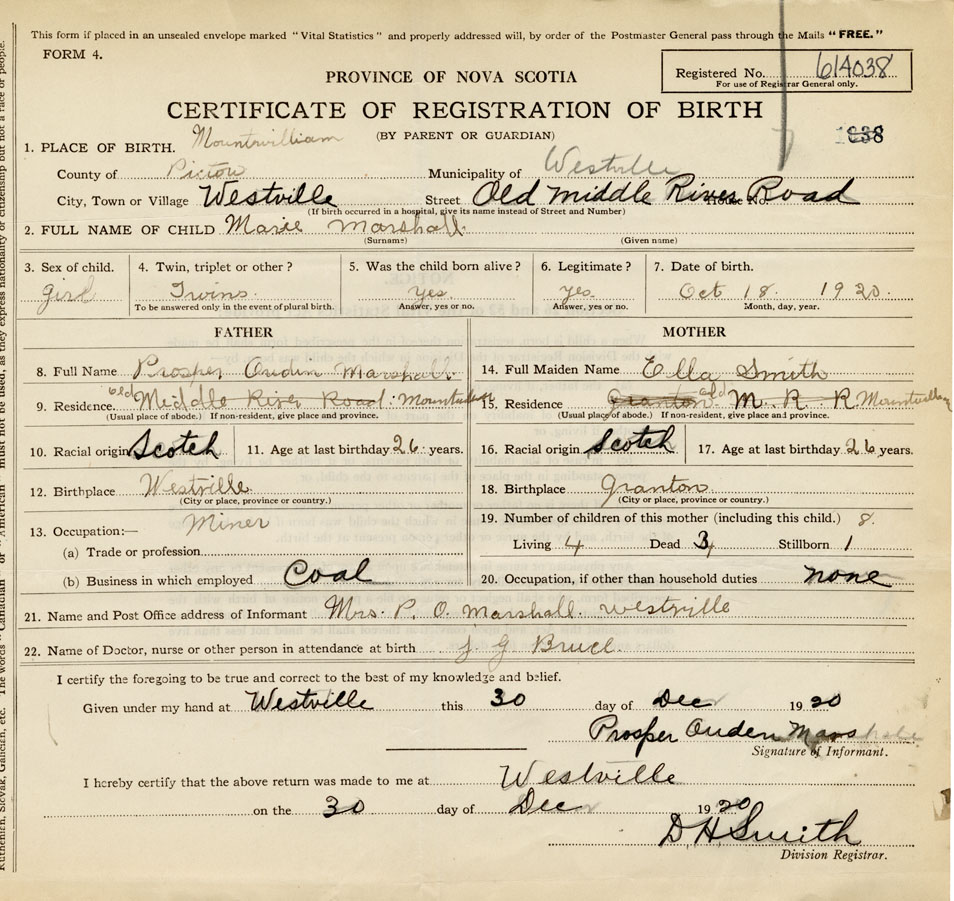 This form if placed in an unsealed envelope marked "Vital Statistics" and properly addressed will, by order of the Postmaster General pass through the Mails "FREE."
FORM 4.
PROVINCE OF NOVA SCOTIA
Registered No. 614038
For use of Registrar General only.
CERTIFICATE OF REGISTRATION OF BIRTH
(BY PARENT OR GUARDIAN)
1038
1. PLACE OF BIRTH. Mountwilliam
County of Pictou Municipality of Westville
City, Town or Village Westville Street Old Middle River Road House No.
(If birth occurred in a hospital, give its name instead of Street and Number)
2. FULL NAME OF CHILD Marie Marshall
(Surname) (Given name)
3. Sex of child. 4. Twin, triplet or other? 5. Was the child born alive? 6. Legitimate? 7. Date of birth.
girl Twins. yes. yes. Oct 18. 1920.
To be answered only in the event of plural birth. Answer, yes or no. Answer, yes or no. Month, day, year.
FATHER MOTHER
8. Full Name Prosper Ouden Marshall. 14. Full Maiden Name Ella Smith
9. Residence. old Middle River Road. 15. Residence Granton old M. R. R.
(Usual place of abode.) If non-resident, give place and province. (Usual place of abode.) If non-resident, give place and province.
10. Racial origin Scotch 11. Age at last birthday 26 years. 16. Racial origin Scotch 17. Age at last birthday 26 years.
12. Birthplace Westville 18. Birthplace Granton
(City or place, province or country.) (City or place, province or country.)
13. Occupation:— Miner 19. Number of children of this mother (including this child.) 8.
(a) Trade or profession Living 4 Dead 3 Stillborn 1
(b) Business in which employed Coal 20. Occupation, if other than household duties none
21. Name and Post Office address of Informant Mrs. P. O. Marshall. Westville
22. Name of Doctor, nurse or other person in attendance at birth J G Bruce.
I certify the foregoing to be true and correct to the best of my knowledge and belief.
Given under my hand at Westville this 30 day of Dec 1920
Prosper Ouden Marshall
Signature of Informant.
I hereby certify that the above return was made to me at Westville
on the 30 day of Dec 1920
D H Smith
Division Registrar.